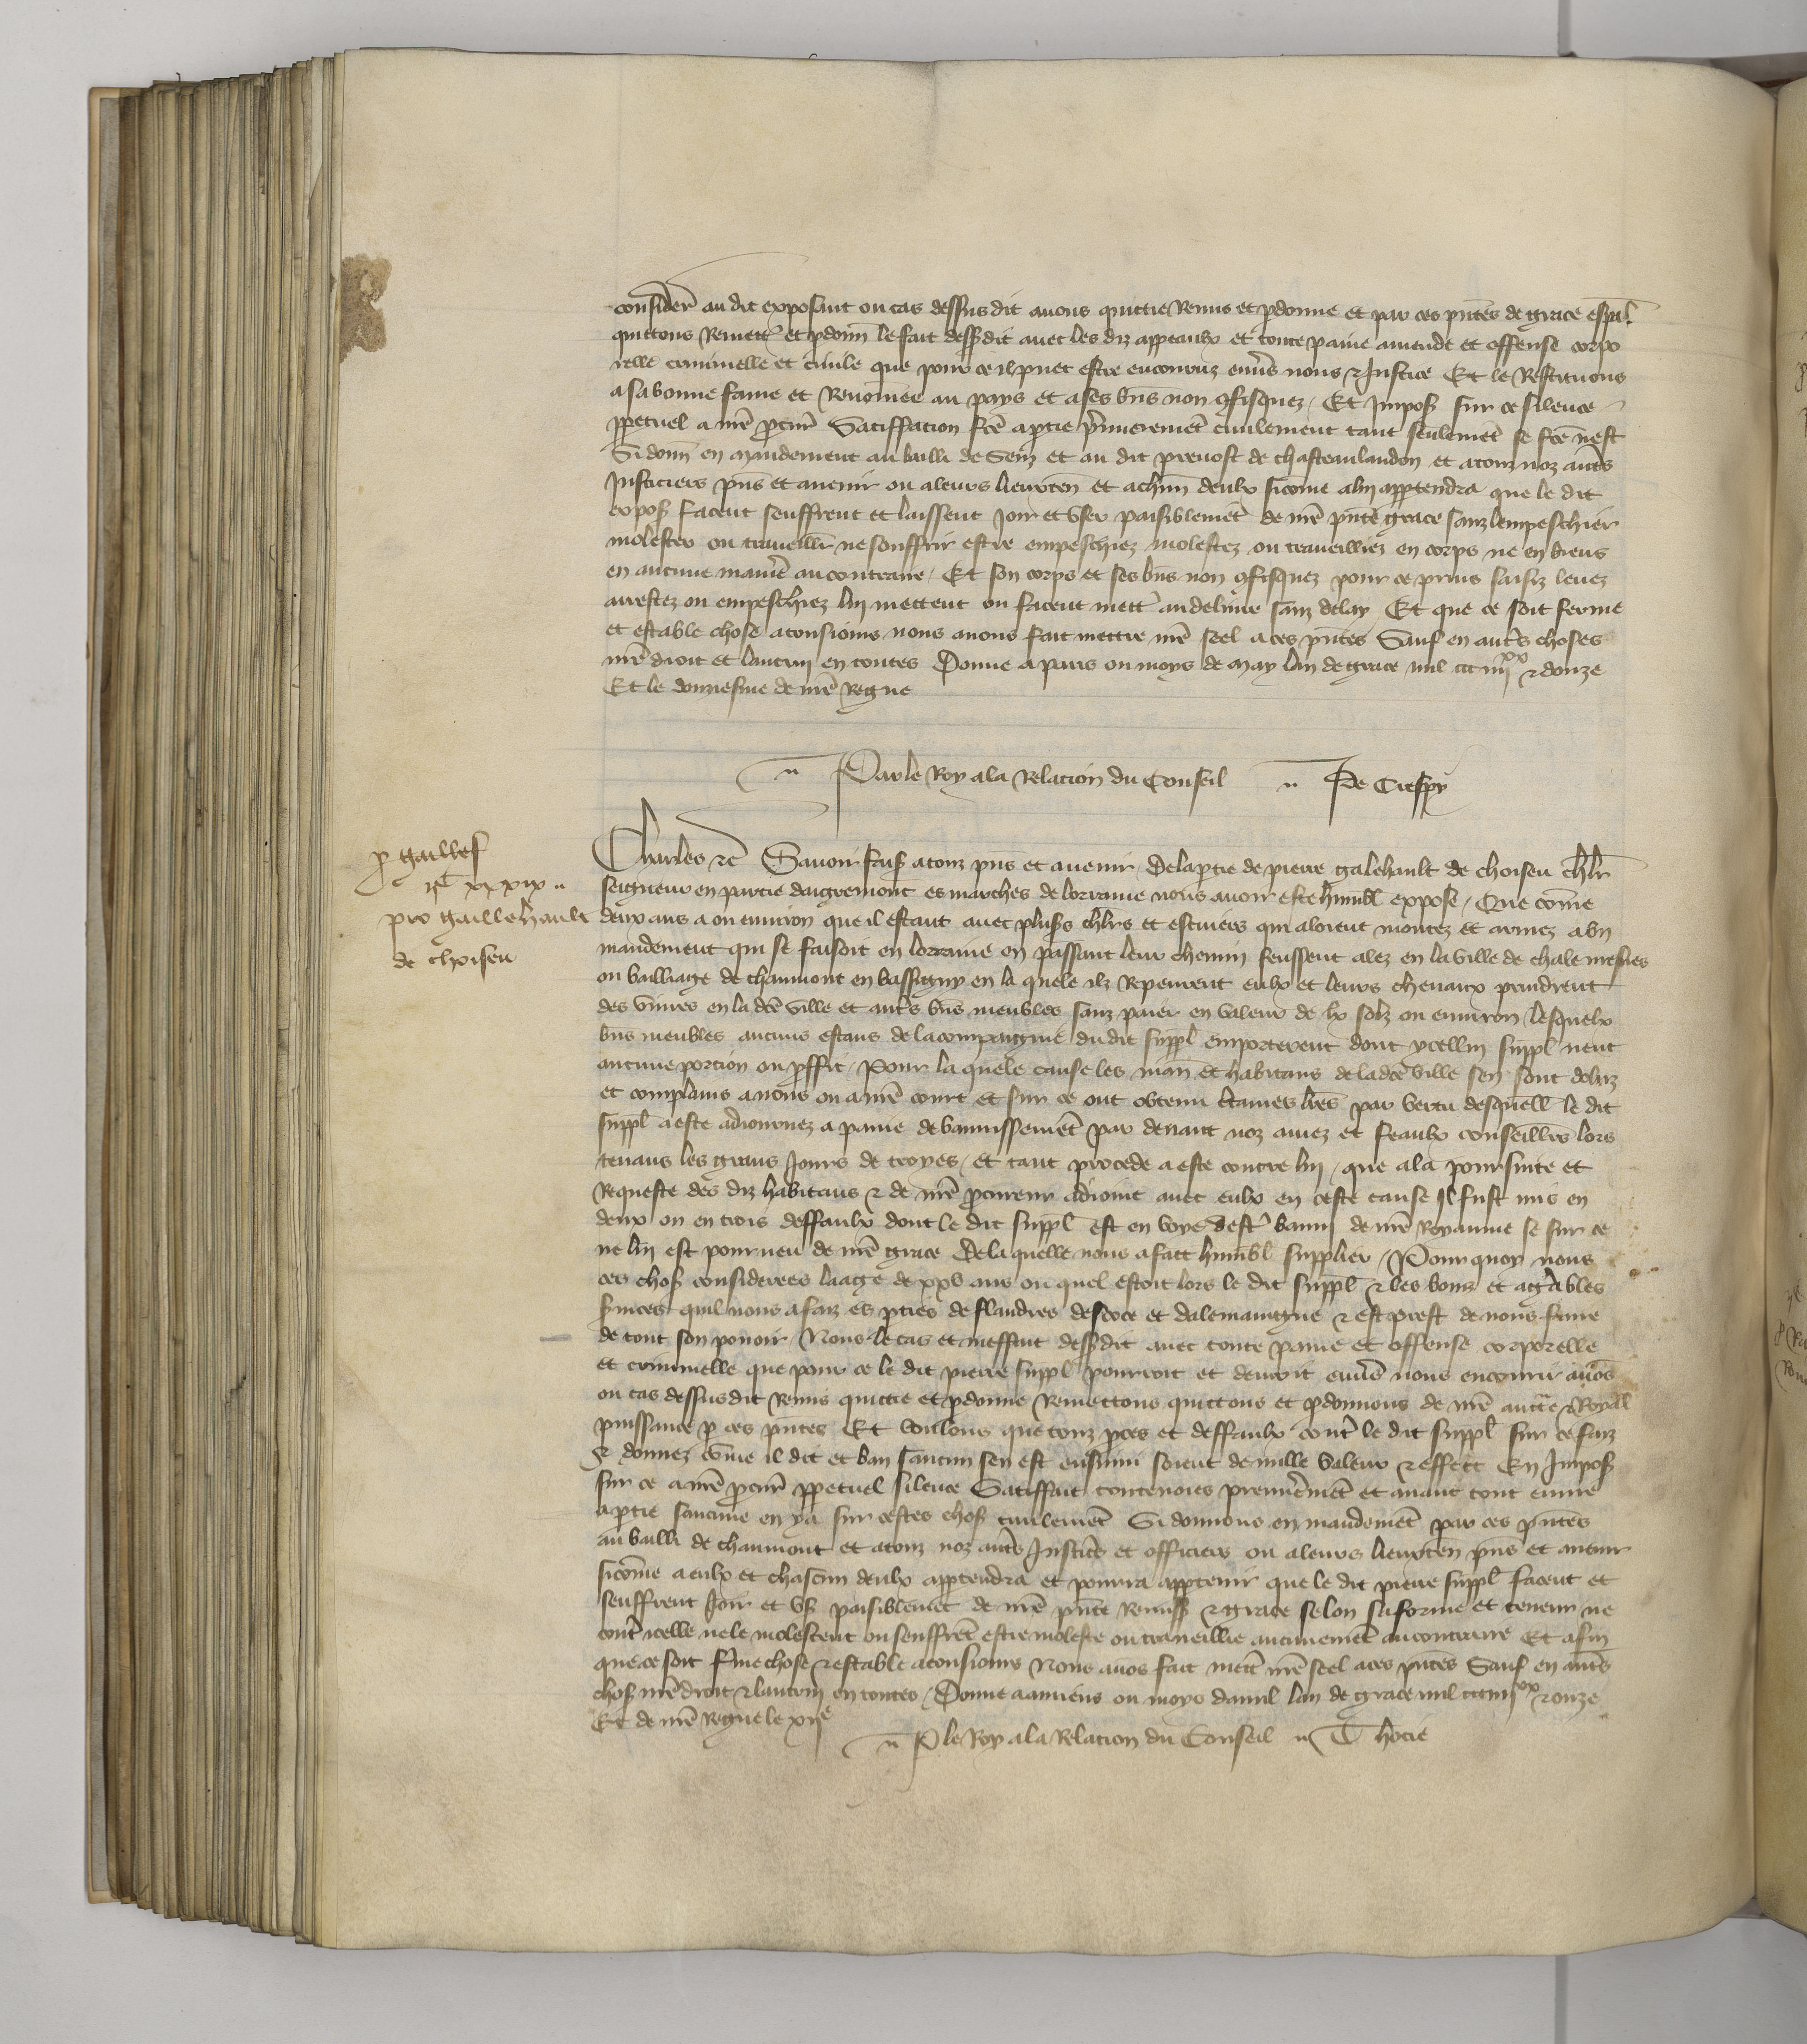 consider au dit exposant ou cas dessus dit avons quittie Remis et pdonne et par ces pntes de grace espal
quittons Remett et pdonn le fait dessdit avec les diz appeaulx et toute paine amende et offense corpo
relle criminelle et civile que pour ce il puet estre encouruz envs nous & Justice Et le Restituons
a sa bonne fame et Renomee au pays et a ses bns non 9fisquez / Et Impos sur ce silence
ppetuel a nre pcur Satiffacion fce a ptie pmierement civilement tant seulemet se fce nest
Si donn en mandement au bailli de Senz et au dit prevost de chasteaulandon et a touz noz autes
Justiciers pns et avenir ou a leurs lieuxten et a chun deulx sicome a luy apptendra que le dit
expos facent seuffrent et laissent joir et user paisiblemet de nre pnte grace sanz lempeschier
molester ou traveillr ne souffrir estre empeschiez molestez ou traveilliez en corps ne en biens
en aucune manie au contraire / Et son corps et ses bns non 9fisquez pour ce prins saisiz levez
arrestez ou empeschiez luy mettent ou facent mett au delivre sanz delay Et que ce soit ferme
et estable chose a tousiours nous avons fait mettre nre seel a ces pntes Sauf en auts choses
nre droit et lautruy en toutes Donne a paris ou moys de May lan de grace mil ccc iiij xx & douze
Et le douzesme de nre Regne
Par le Roy a la Relacion du Conseil De Crespy
p gailles
ijC xxxix
pro gaillehault
de choiseu
Charles &c Savoir fais a touz pns et avenir / De la ptie de pierre galehault de choiseu chlr
seigneur en partie daigremont es marches de lorraine nous avoir este humbl expose / Que come
deux ans a ou environ que il estant avec plus chlrs et escuiers qui aloient montez et armez a un
mandement qui se faisoit en lorraine en passant leur chemin feussent alez en la ville de chalemesnes
ou bailliage de chaumont en bassigny en la quele ilz Repeurent eulx et leurs chevaux prindrent
des vivres en la dce ville et auts bns meubles sanz paier en valeur de lx solz ou environ / lesquelx
bns meubles aucuns estans de la compaignie du dit suppl emporterent dont ycellui suppl neut
aucune porcion ou pffit / Pour la quele cause les man et habitans de la dce ville sen sont doluz
et complains a nous ou a nre court et sur ce ont obtenu ctaines lres par vertu desquell le dit
suppl a este adiournez a paine de bannissemet par devant noz amez et feaulx conseillers lors
tenans les grans Jours de troyes / et tant procede a este contre luy / que a la poursuite et
Requeste des diz habitans & de nre pcureur adioint avec eulx en ceste cause Il fust mis en
deux ou en trois deffaulx dont le dit suppl est en voye dest banni de nre Royaume se sur ce
ne luy est pourveu de nre grace De la quelle nous a fait humbl supplier / Pour quoy nous
ces chos considerees laage de xxv ans ou quel estoit lors le dit suppl & les bons et agrables
svices quil nous a faiz es pties de flandres descoce et dalemaingne & est prest de nous faire
de tout son povoir / Nous le cas et meffait dessdit avec toute paine et offense corporelle
et criminelle que pour ce le dit pierre suppl pourroit et devroit envs nous encourir avos
ou cas dessusdit Remis quittie et pdonne Remettons quittons et pdonnons de nre aucte Royal
puissance p ces pntes Et voulons que touz pces et deffaulx cont le dit suppl sur ce faiz
& donnez come il dit et ban saucun sen est ensuivi soient de nulle valeur & effect En Impos
sur ce a nre pcur ppetuel silence Satiffait toutevoies premieremet et avant tout euvre
a ptie saucune en ya sur cestes chos civilemet Si donnons en mandemet par ces pntes
au bailli de chaumont et a touz noz auts Justicers et officiers ou a leurs lieuxten pns et avenir
sicome a eulx et chascun deulx apptendra et pourra apptenir que le dit pierre suppl facent et
seuffrent Joir et us paisiblement de nre pnte Remiss & grace selon sa forme et teneur ne
cont icelle ne le molestent ou seuffret estre moleste ou traveillie aucunemet au contraire Et afin
que ce soit fme chose & estable a tousiours Nous avos fait mett nre seel a ces pntes Sauf en auts
chos nre droit & lautruy en toutes / Donne a amiens ou moys davril lan de grace mil ccc iiij xx & onze
Et de nre Regne le xije
P le Roy a la Relacion du Conseil T hocie